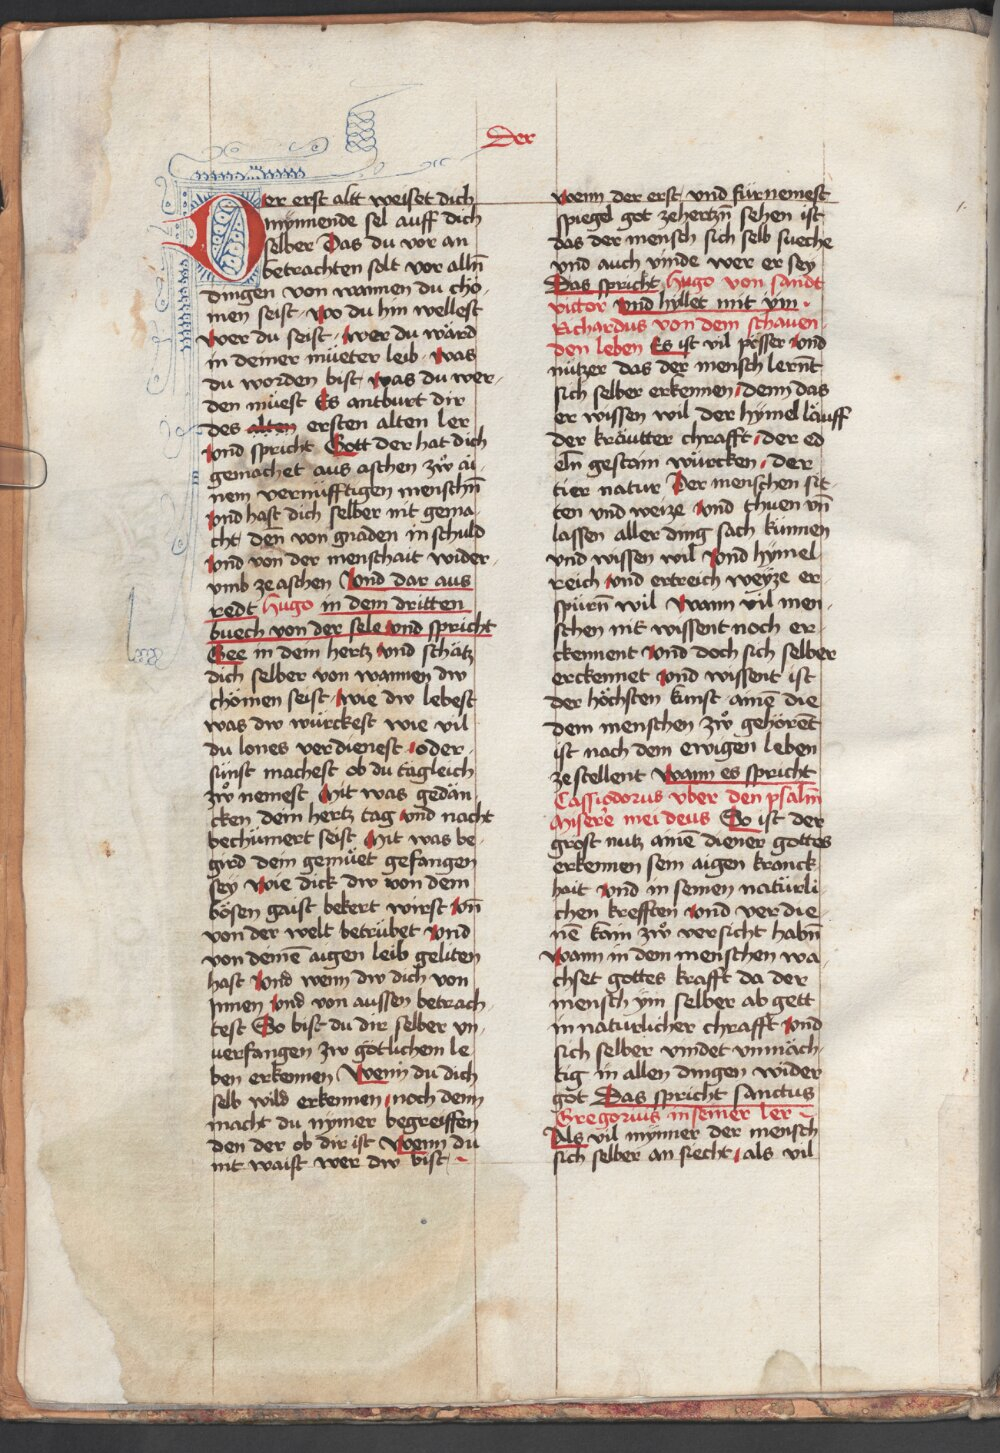 Der
Der erst altt weiset dich
mynnende sel auff dich
selber Das du vor an
betrachten solt vor alln̄
dingen von wannen du cho-
men seist · Wo du hin wellest
Wer du seist · Wer du wärd
in deiner müeter leib · Was
du worden bist · Was du wer-
den müest Es antburt dir
des alten ersten alten ler
Vnd spricht Gott der hat dich
gemachet aus aschen zẘ ai-
nem vernüfftigen menschn̄
Vnd hast dich selber nit gema-
cht · den̄ von gnaden in schuld
Vnd von der menschait wider-
vmb ze aschen Vnd dar aus
redt Hugo in dem dritten
buech von der sele Vnd spricht
Gee in dein hertz Vnd schätz
dich selber von wannen dw
chömen seist · Wie dw lebest
was dw würckest wie vil
du lones verdienest · oder
sünst machest ob du tägleich
zẘ nemest Mit was gedän-
cken dein hertz tag Vnd nacht
bechümert seist Mit was be-
gird dein gemüet gefangen
sey Wie dick dw von dem
bösen gaist bekert wirst Vn̄
von der welt betrübet Vnd
von deinē aigen leib geliten
hast Vnd wenn dw dich von
Innen Vnd von aussen betrach-
test So bist du dir selber vn-
uerfangen zw götlichem le-
ben erkennen Wenn du dich
selb wild erkennen · noch denn
macht du nymer begreiffen
den der ob dir ist Wenn du
nit waist wer dw bist
Wenn der erst · vnd fürnemest
spiegel got zehertzn̄ sehen ist
das der mensch sich selb sueche
vnd auch vinde wer er sey
Das spricht Hugo von sandt
victor Vnd hillet mit ym
Richardus von dem schauen-
den leben Es ist vil pesser Vnd
nützer das der mensch lernt
sich selber erkennen · denn das
er wissen wil der hymel läuff
der kräutter chrafft · der ed
eln̄ gestain würcken · der
tier natur Der menschen sit-
ten vnd weize Vnd thuen vn̄
lassen aller ding sach künnen
vnd wissen wil Vnd hymel-
reich Vnd ertreich weyze er-
spürn̄ wil Wann vil men-
schen nit wissent noch er-
ckennent Vnd doch sich selber
erckennet Vnd wissent ist
der höchsten kunst · ainē die
dem menschen zẘ gehörēt
ist nach dem ewigen leben
ze stellent Wann es spricht
Cassiodorus vber den psalm̄
Miserē mei deus So ist der
gröst nutz ainē diener gottes
erkennen sein aigen kranck
hait Vnd in seinen natürli-
chen krefften Vnd verdie-
nē kain zẘ versicht habn̄
Wann in dem menschen wa-
chset gottes krafft da der
mensch ym selber ab gett
in natürlicher chrafft Vnd
sich selber vindet vnmäch-
tig in allen dingen wider
got Das spricht sanctus
Gregorius in seiner ler
Als vil mynner der mensch
sich selber an siecht · als vil